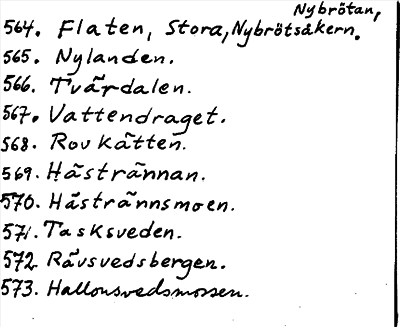 Nybrötan,
564. Flaten, Stora, Nybrötsåkern.
565. Nylanden.
566. Tvärdalen.
567. Vattendraget.
568. Rovkätten.
569. Hästrännan.
570. Hästrännsmoen.
571. Tasksveden.
572. Rävsvedsbergen.
573. Hallonsvedsmossen.